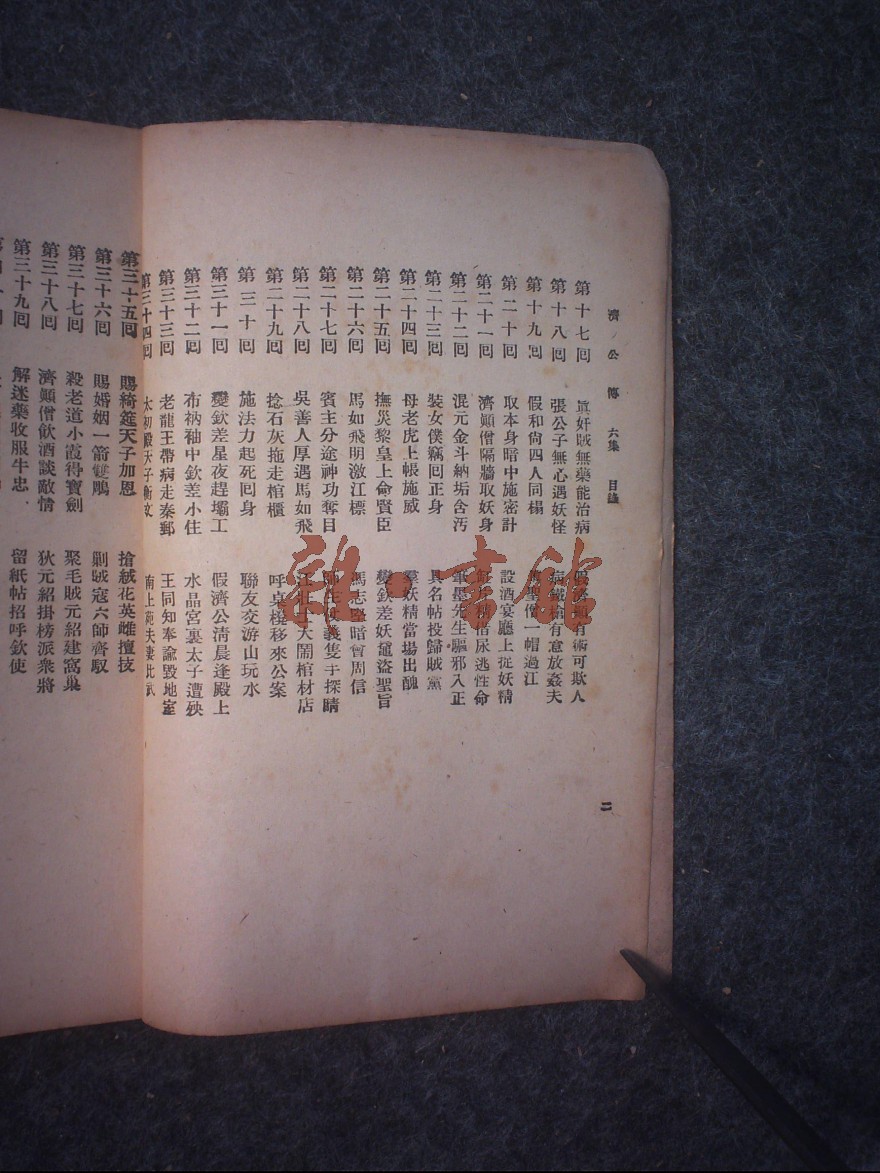 濟公傳 六集 目錄
第十七回 真奸賊無藥能治病 假濟顛有術可欺人
第十八回 張公子無心遇妖怪 病鐵枴有意放姦夫
第十九回 假和尙四人同榻 聖僧一帽過江
第二十回 取本身暗中施密計 設酒宴廳上捉妖精
第二十一回 濟顚僧隔牆取妖身 借尿逃性命
第二十二回 混元金斗納垢含汚 筆墨先生驅邪入正
第二十三回 裝女僕竊囘正身 具名帖投歸賊黨
第二十四回 母老虎上帳施威 羣妖精當場出醜
第二十五回 撫災黎皇上命賢臣 變欽差妖黿盜聖旨
第二十六回 馬如飛明激江標 馬志堅暗會周信
第二十七回 賓主分途神功奪目 義隻手探睛
第二十八回 吳善人厚遇馬如飛 汪壯士大鬧棺材店
第二十九回 捻石灰拖走棺櫃 呼桌櫈移來公案
第三十回 施法力起死囘身 聯友交游山玩水
第三十一回 變欽差星夜趕壩工 假濟公淸晨逢殿上
第三十二回 布衲袖中欽差小住 水晶宮裏太子遭殃
第三十三回 老龍王帶病走秦郵 王同知奉諭毀地室
第三十四回 太初殿天子衡文 夫妻比武
第三十五回 賜綺筵天子加恩 搶絨花英雌擅技
第三十六回 賜婚姻一箭雙鵰 剿賊寇六師齊馭
第三十七回 殺老道小霞得寶劍 聚毛賊元紹建窩巢
第三十八回 濟顚僧飲酒談敵情 狄元紹掛榜派衆將
第三十九回 解迷藥收服牛忠 留紙帖招呼欽使
二
雜書館